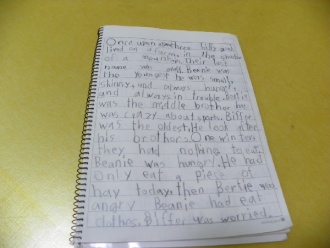 Once upon
lived on a farm in the shadow
of a mountain. Their last
name was Beanie was
the youngest he was small,
skinny, and hungry,
and always in trouble. Bertie
was the middle brother he
was crazy about sports. Biffer
was the oldest. He look after
his brothers. One winter
they had nothing to eat.
Beanie was hungry. He had
only eat a piece of
hay today, then Bertie was
angry Beanie had eat
clothes. Biffer was worried.